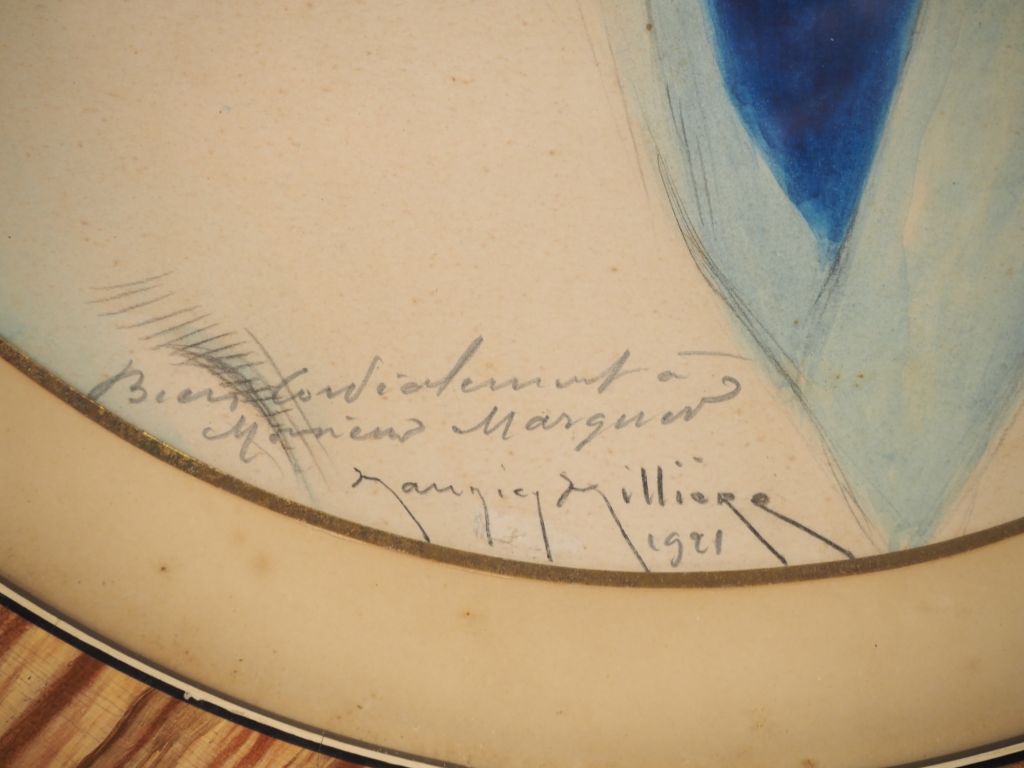 Bien Cordialement à
Monsieur Marguer
Maurice Millière
1921